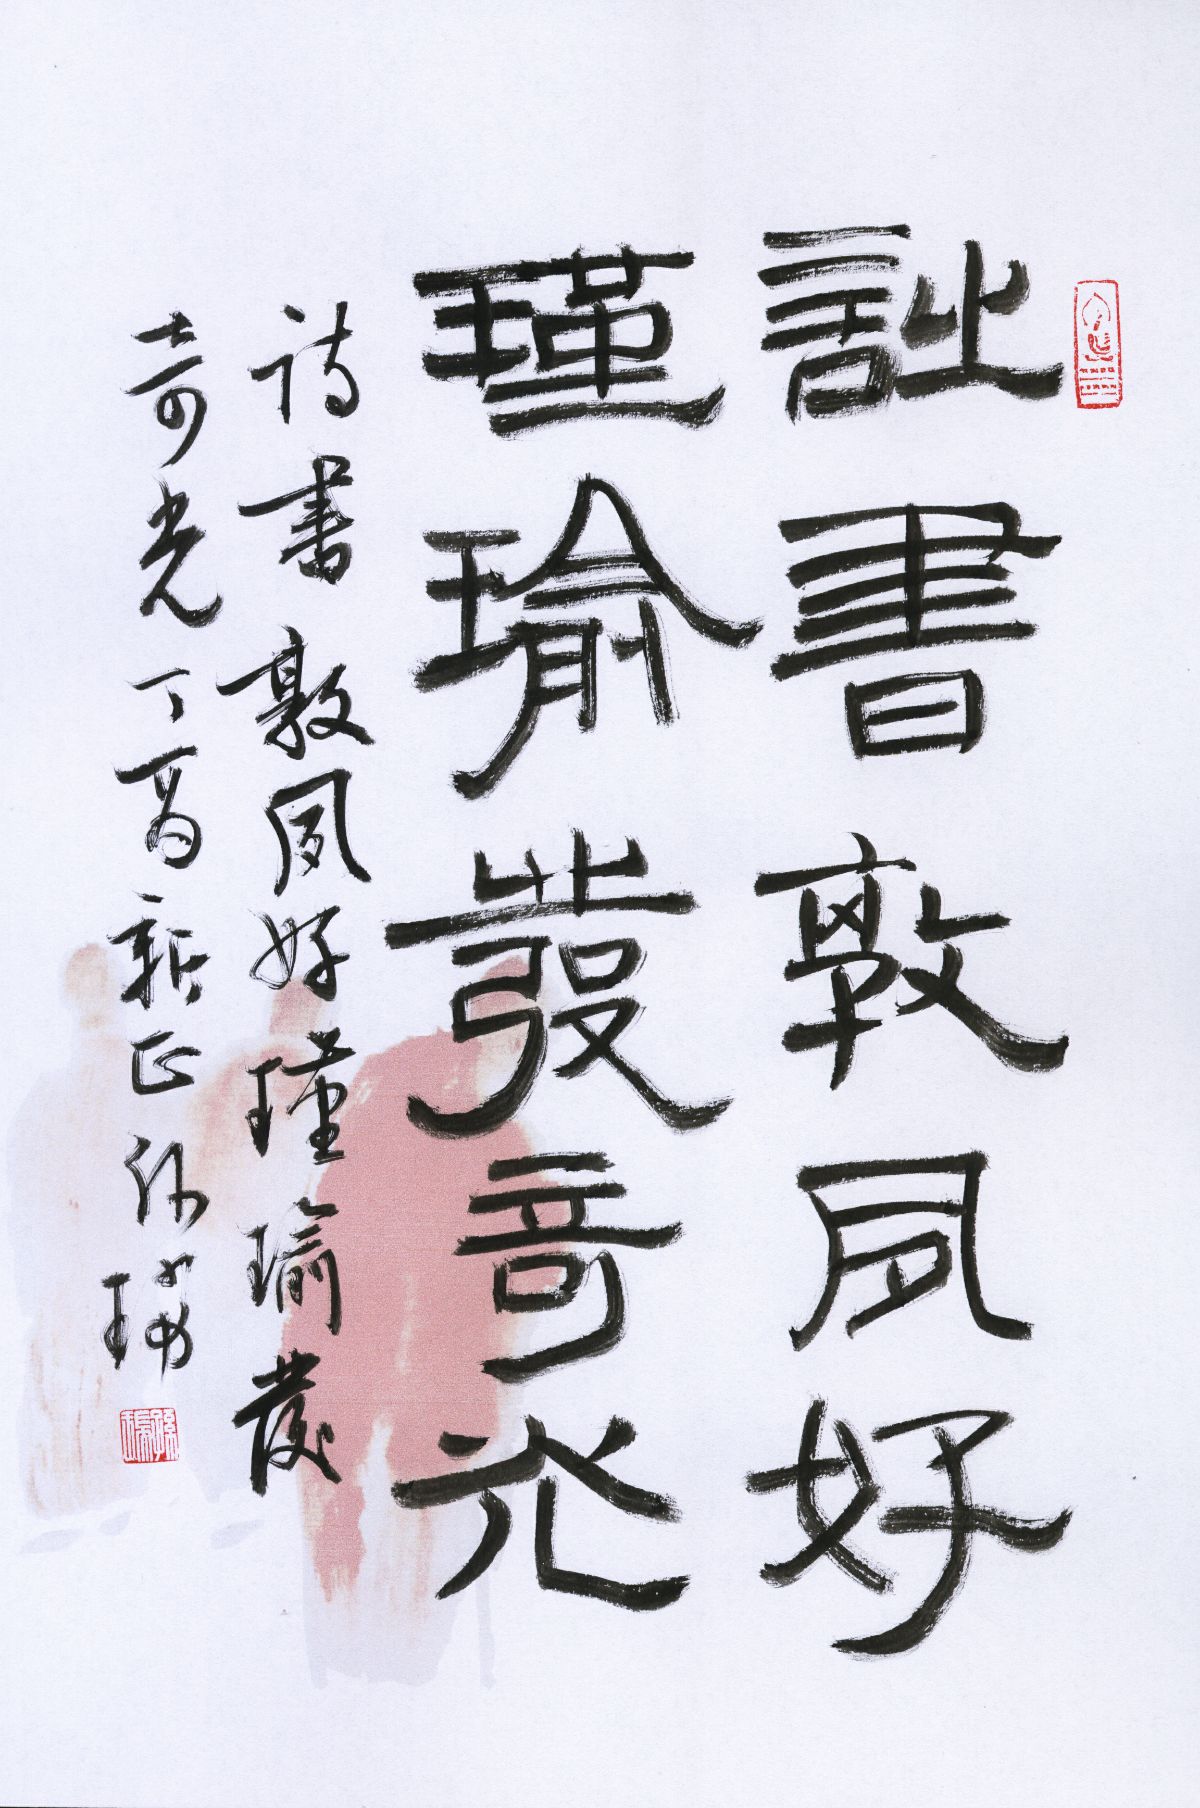 詩書敦夙好
瑾瑜發奇光
詩書敦夙好瑾瑜發
奇光丁酉新正孫瑞